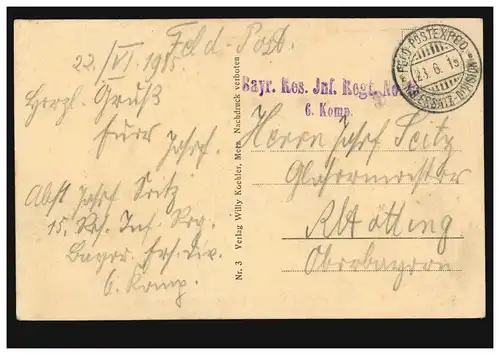 Feld-Post.
22./VI. 1915
Herzl. Gruß
Euer Josef.
Abst Josef Seitz
15. Res. Inf. Reg.
Bayer. Ers. Div.
6. Komp.
Nr. 3 Verlag Willy Koehler, Metz. Nachdruck verboten
Bayr. Res. Inf. Regt. No.
6. Komp.
FELD-POSTEXPED.
23. 6. 15
Herrn Josef Seitz
Glasermeister
Altötting
Oberbayern